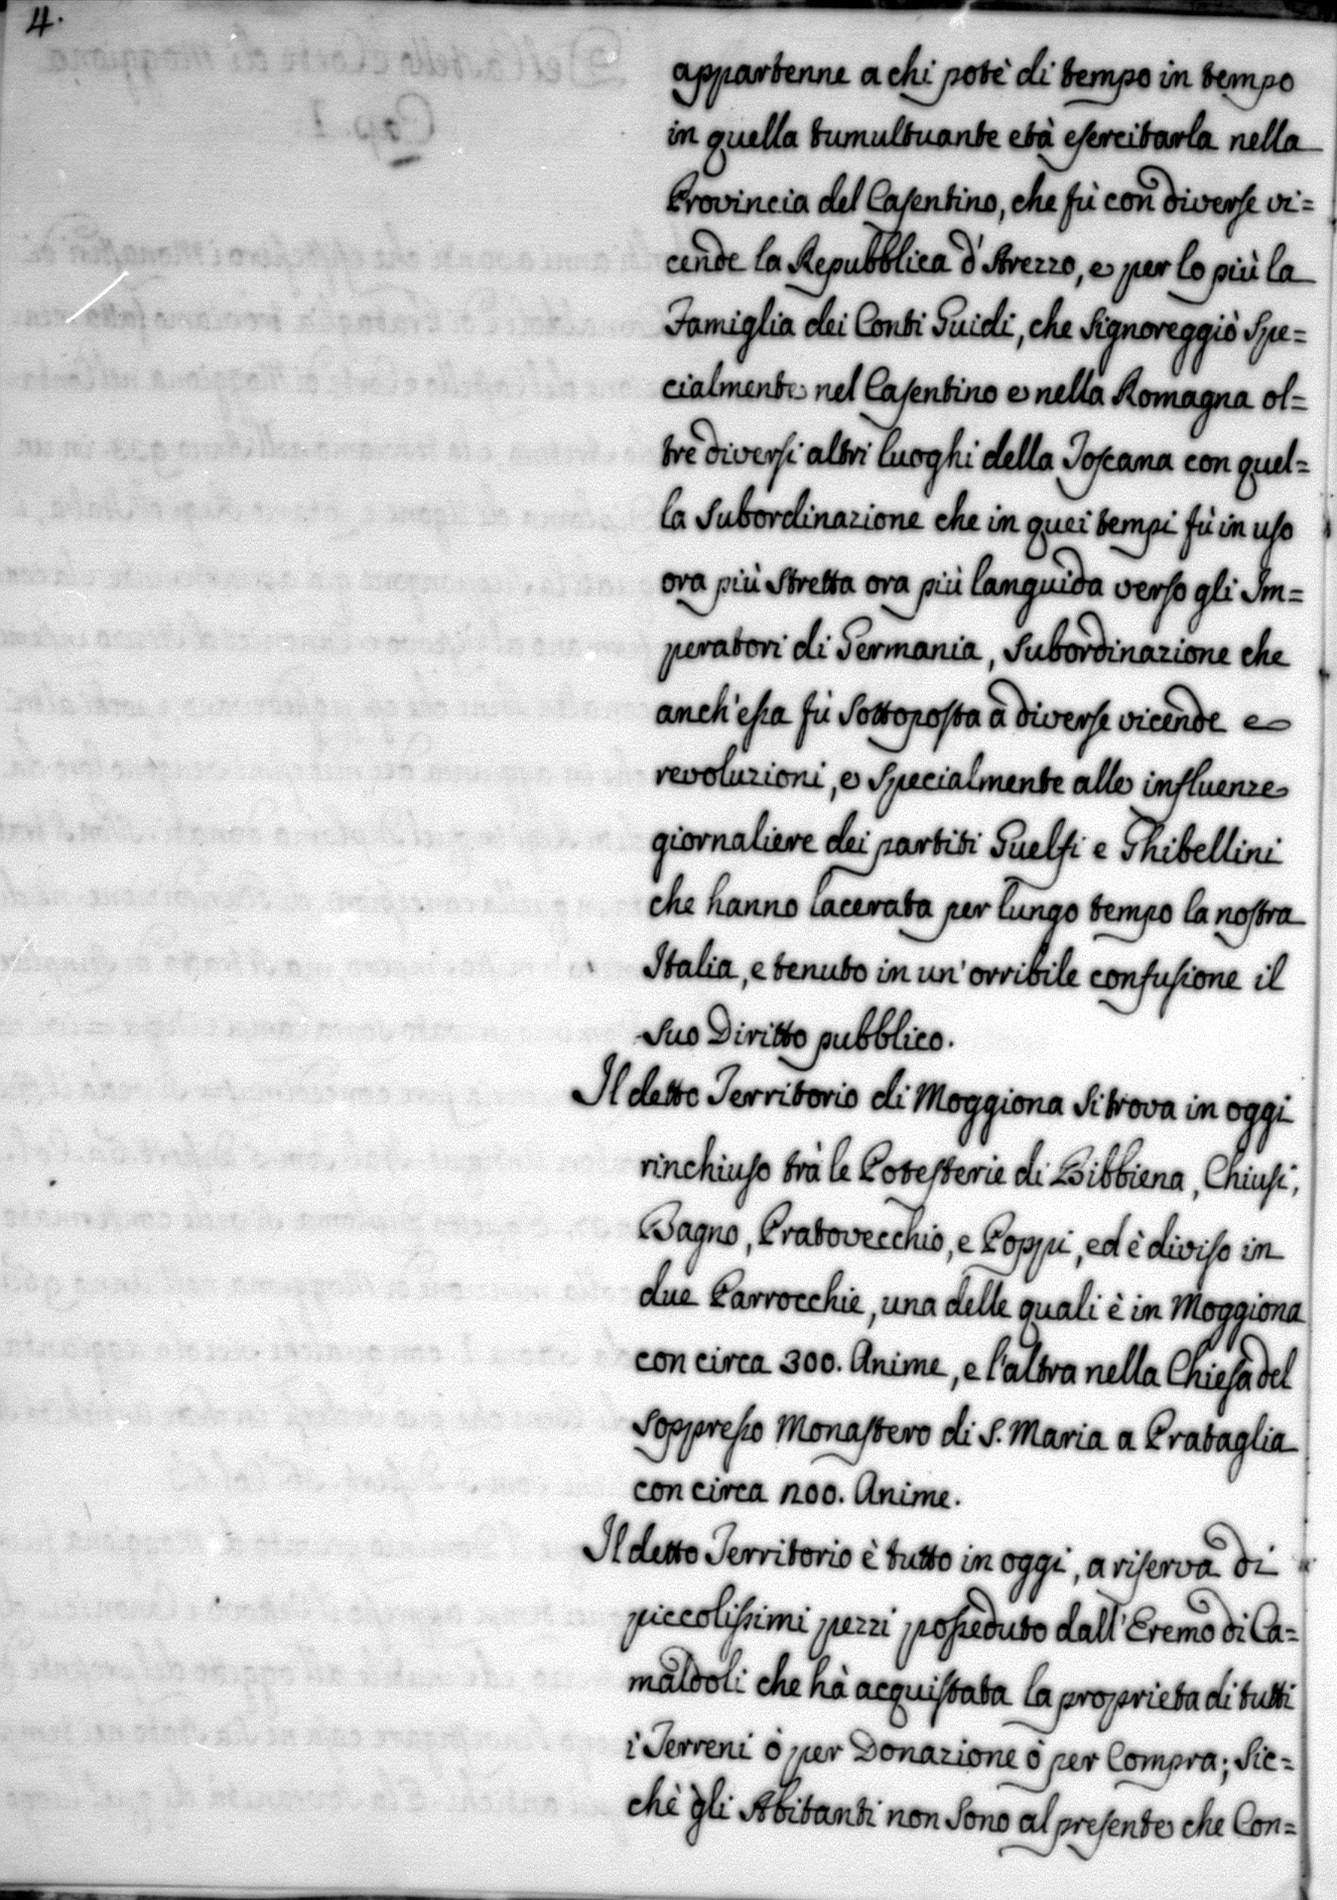 4.
appartenne a chi potè di tempo in tempo
in quella tumultuante età esercitarla nella
Provincia del Casentino, che fù con diverse vi=
cende la Repubblica d'Arezzo, e per lo più la
Famiglia dei Conti Guidi, che signoreggiò spe=
cialmente nel Casentino e nella Romagna ol=
tre diversi altri luoghi della Toscana con quel=
la subordinazione che in quei tempi fù in uso
ora più stretta ora più languida verso gli Im=
peratori di Germania, subordinazione che
anch'essa fù sottoposta à diverse vicende e
revoluzioni, e specialmente alle influenze
giornaliere dei partiti Guelfi e Ghibellini
che hanno lacerata per lungo tempo la nostra
Italia, e tenuto in un'orribile confusione il
suo Diritto pubblico.
Il detto Territorio di Moggiona si trova in oggi
rinchiuso trà le Potesterie di Bibbiena, Chiusi,
Bagno, Pratovecchio, e Poppi, ed è diviso in
due Parrocchie, una delle quali è in Moggiona
con circa 300. Anime, e l'altra nella Chiesa del
soppresso Monastero di S. Maria a Prataglia
con circa 1200. Anime.
Il detto Territorio è tutto in oggi, a riserva di
piccolissimi pezzi posseduto dall'Eremo di Ca=
maldoli che hà acquistata la proprieta di tutti
i Terreni ò per Donazione ò per Compra; sic=
chè gli Abitanti non sono al presente che Con=